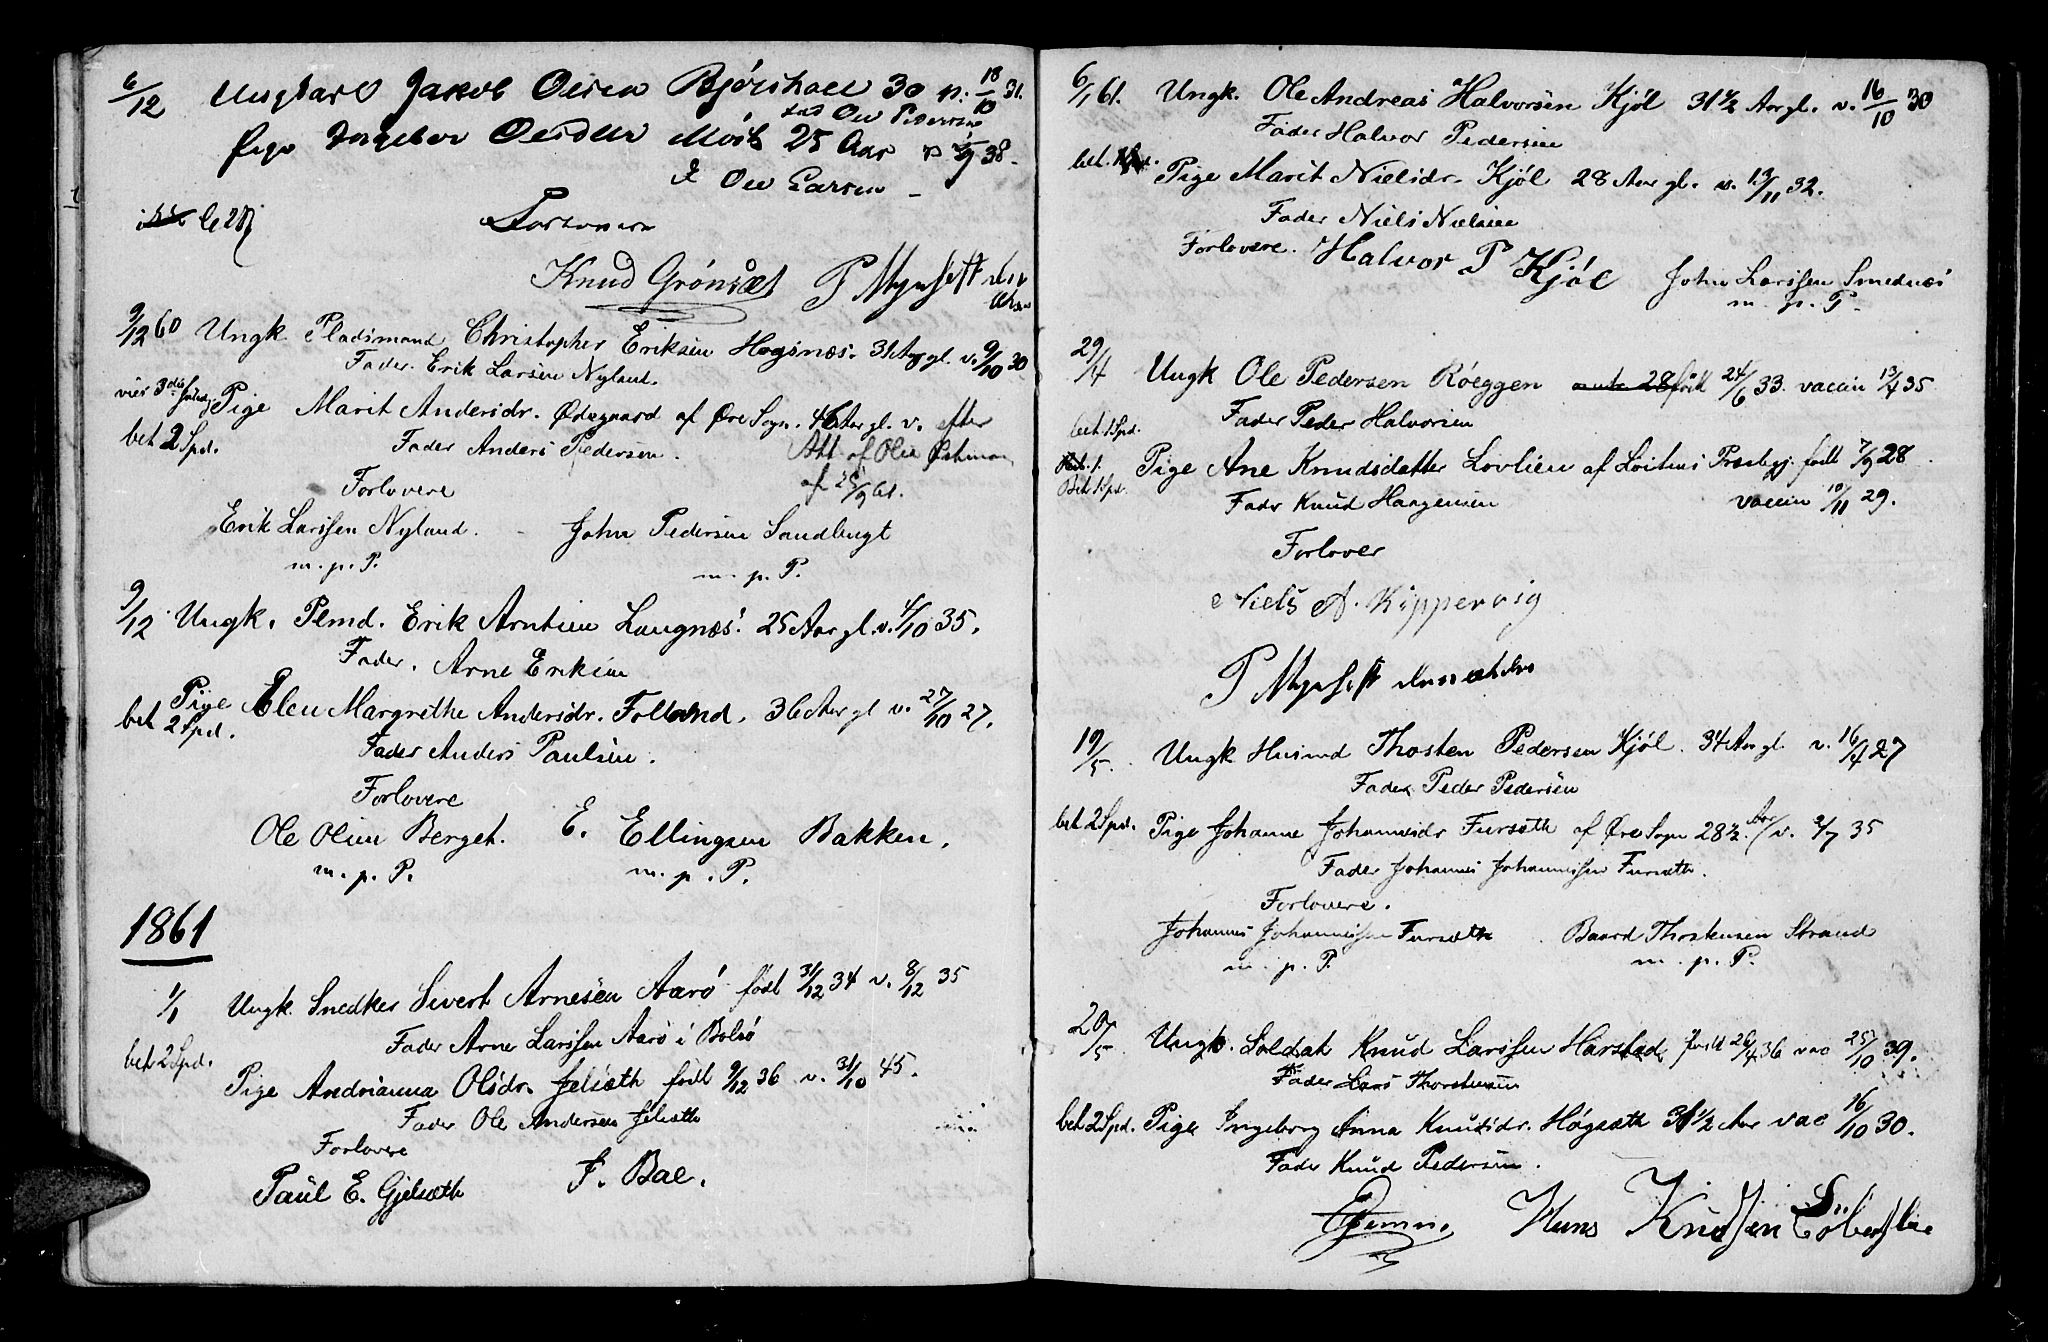 6/12 Ungkarl Jakob Olsen 30 18/10 31.
Ole Pedersen
Pige Ingebor 25 Aar 38.
F Ole Larsen
Forlovere
Knud Grønsæt P
9/12 60 Ungk Pladsmand Christopher Eriksen Hognæs. 31 Aar gl. v. 9/10 30
Fader. Erik Larsen Nyland.
Pige Marit Andersdr. Ødegaard af Øre Sogn. 46 Aar gl. v. efter
bet 2 Spd. Fader Anders Pedersen. Att. af Ole
af 25/9 61.
Forlovere
Erik Larssen Nyland. John Pedersen Sandbugt
m. p. P. m. p. P.
9/12 Ungk. Plmd. Erik Arntsen Langnæs. 25 Aar gl. v. 4/10 35.
Fader. Arne Eriksen
Pige Elen Margrethe Andersdr. Folland. 36 Aar gl v. 27/10 27.
bet 2 Spd.
Fader Anders Paulsen.
Forlovere
Ole Olsen Berget. E. Ellingsen Bakken.
m. p. P. m. p. P.
1861
1/1 Ungk. Snedker Sivert Arnesen Aarø født 31/12 34 v. 8/12 35
Fader Arne Larssen Aarø i Bolsø
bet 2 Spd.
Pige Andrianna Olsdr. Jelsæth født 9/12 36 v. 31/10 45.
Fader Ole Andersen Jelsæth
Forlovere
Paul E. Gjelsæth J. Bae.
6/1 61. Ungk. Ole Andreas Halvorsen Kjøl 31 1/2 Aar gl. v. 16/10 30
Fader Halvor Pedersen
bet.
Pige Marit Nielsdr. Kjøl 28 Aar gl. v. 13/11 32.
Fader Niels Nielsen
Forlovere. Halvor P Kjøl John Larssen Smednæs
m. p. P.
29/4 Ungk Ole Pedersen Røeggen født 24/6 33. vaccin 13/4 35
Fader Peder Halvorsen
bet. 1 Spd.
Pige Ane Knudsdatter Lovlien af Loitens Præstegj. født 7/9 28
Bet 1 Spd. Fader Knud Haagensen vaccin 10/11 29.
Forlover
Niels A. Kippervig
P
19/5. Ungk Husmd Thosten Pedersen Kjøl. 34 Aar gl. v. 16/4 27
Fader Peder Pedersen
bet 2 Spd. Pige Johanne Johannesdr Fursæth af Øre Sogn 28 1/2 Aar v. 2/7 35
Fader Johannes Johannessen Fursæth.
Forlovere.
Johannes Johannessen Fursæth Baard Thostensen Strand
m. p. P. m. p. P.
20/5 Ungk. Soldat Knud Larssen Harstad, født 26/4 36 vac 25/10 39.
Fader Lars Thorstensen
bet 2 Spd. Pige Ingeborg Anna Knutsdr. Høgsæth 31 1/2 Aar vac 16/10 30.
Fader Knud Pedersen.
Hans Knudsen